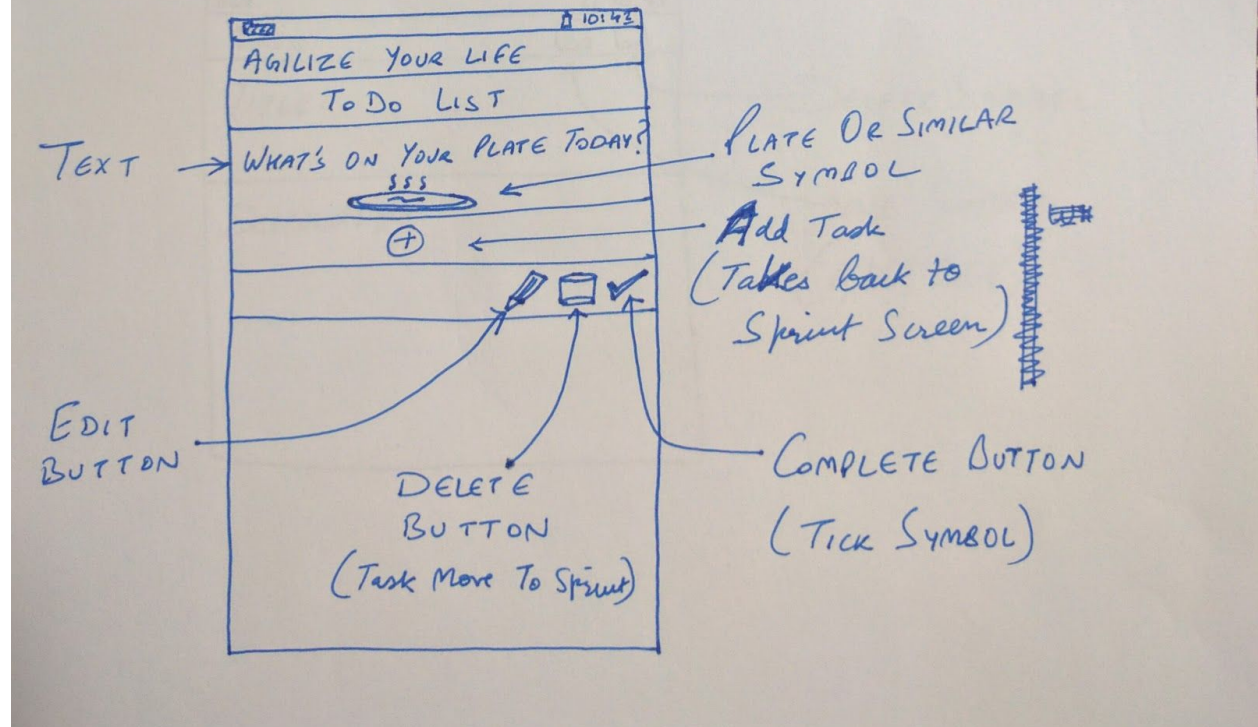 10:43
AGILIZE YOUR LIFE
TO DO LIST
TEXT
WHAT'S ON YOUR PLATE TODAY?
PLATE OR SIMILAR
SYMBOL
Add Task
(Takes back to
Sprint Screen)
EDIT
BUTTON
DELETE
BUTTON
(Task Move To Sprint)
COMPLETE BUTTON
(TICK SYMBOL)